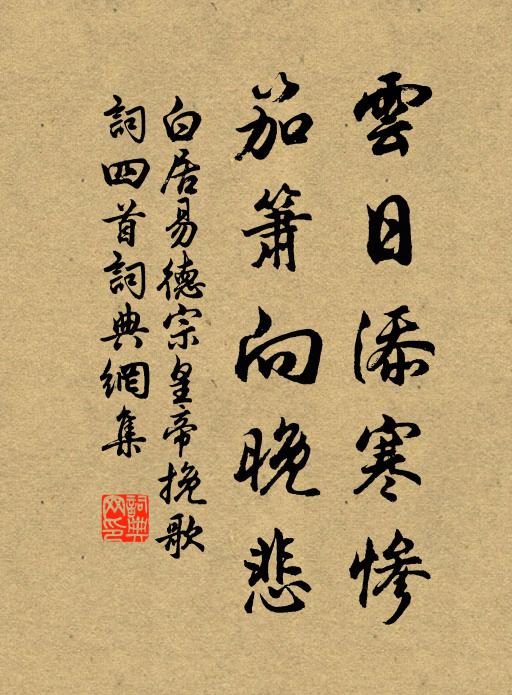 雲日添寒慘
笳簫向晚悲
白居易德宗皇帝挽歌
詞四首詞典網集
詞典網印